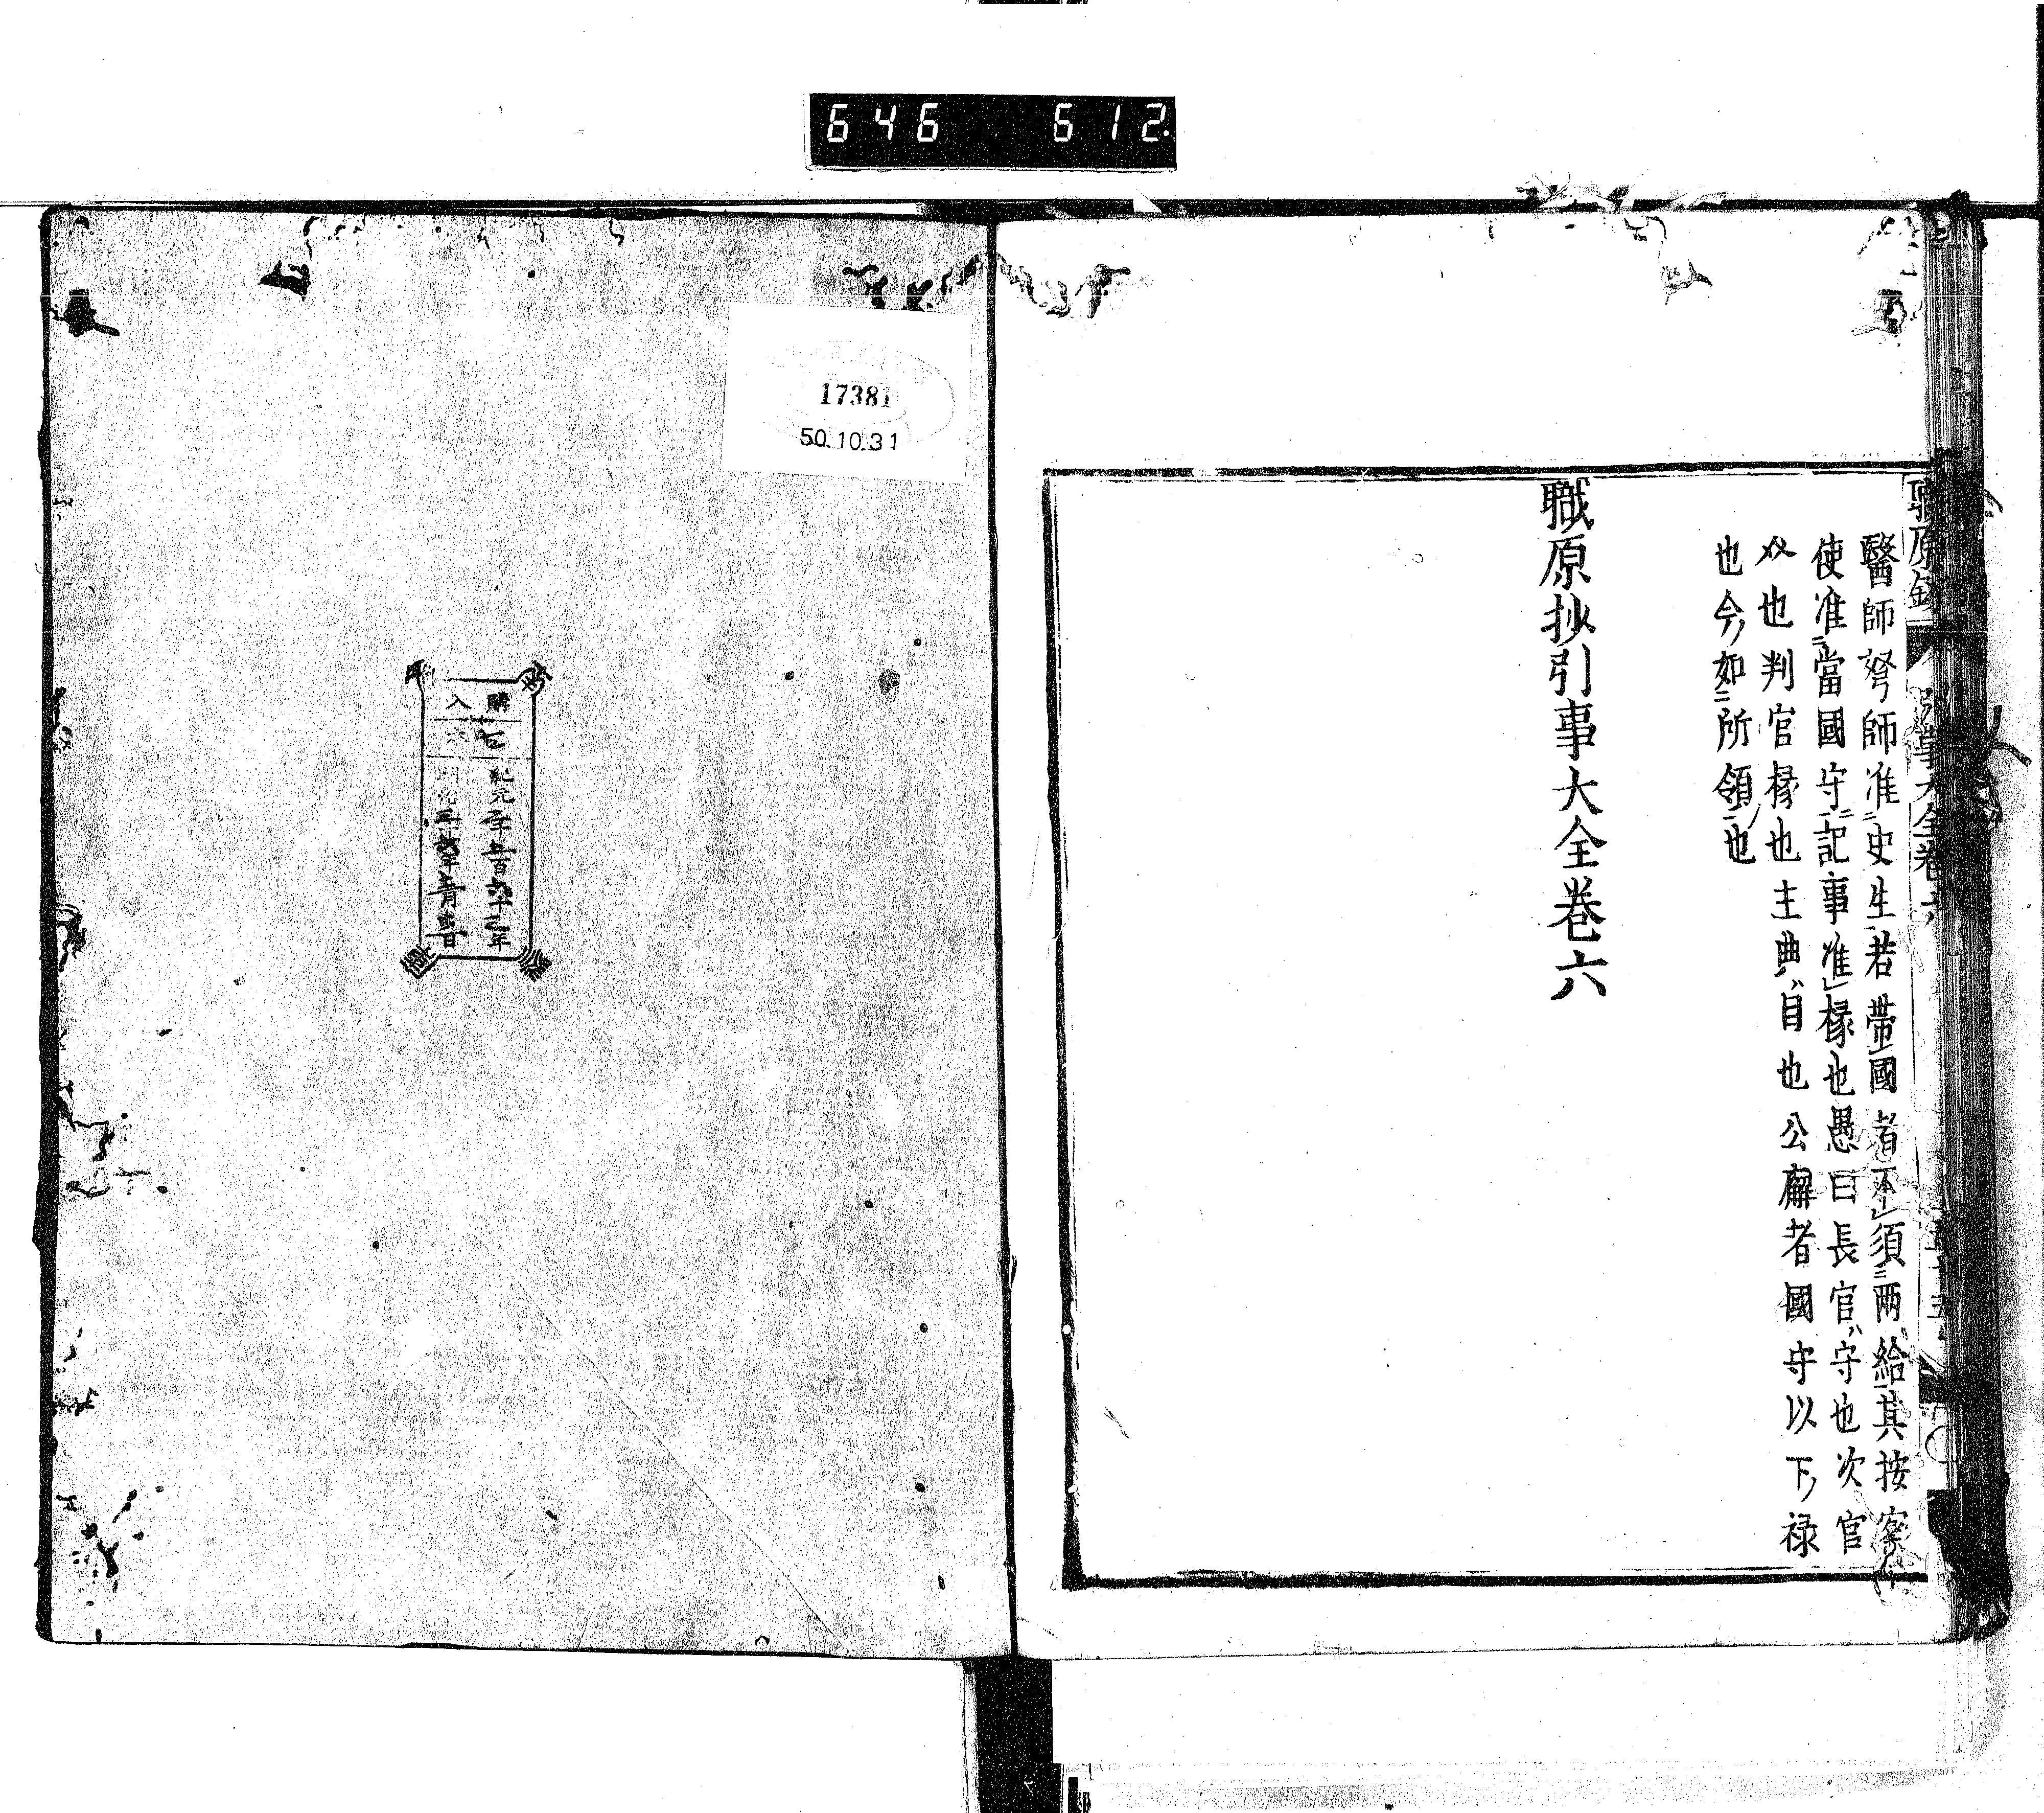 646 612.
醫師弩師准史生若帶國者不須兩給其按察
使准當國守記事准掾也愚曰長官守也次官
介也判官掾也主典目也公廨者國守以下祿
也今如所領也
職原抄引事大全卷六
17381
50.10.31
購入